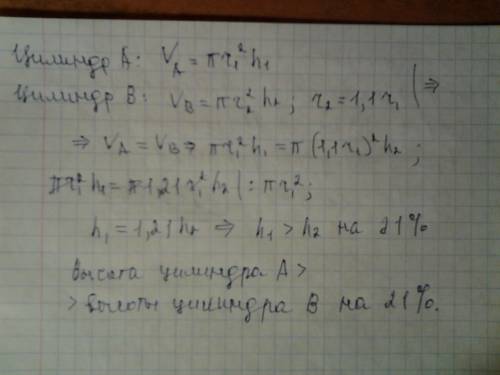 Цилиндр А: V_A = πr₁²h₁
Цилиндр В: V_B = πr₂²h₂; r₂ = 1,1r₁ | ⇒
⇒ V_A = V_B ⇒ πr₁²h₁ = π(1,1r₁)²h₂;
πr₁²h₁ = π1,21r₁²h₂ | : πr₁²;
h₁ = 1,21h₂ ⇒ h₁ > h₂ на 21%
Высота цилиндра А >
> высоты цилиндра В на 21%.